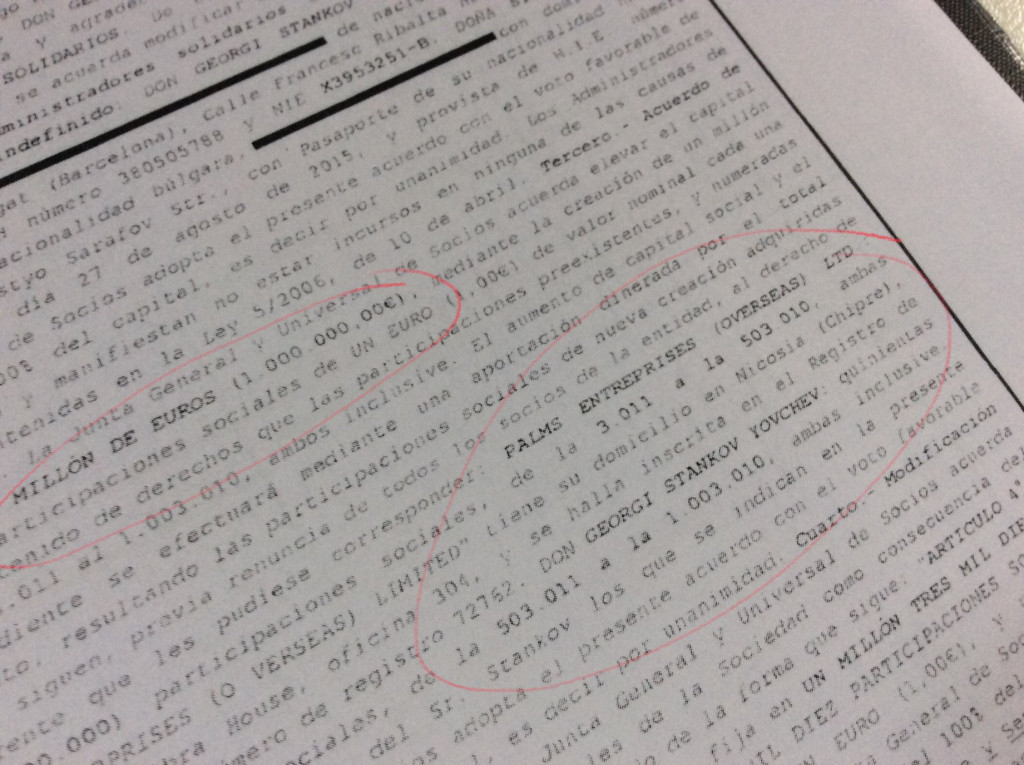 DON GE
SOLIDARIOS. De no
se acuerda modificar
ministradores solidarios
indefinido: DON GEORGI STANKOV
gat (Barcelona), calle Francesc Ribalta
número 38050578B y NIE X3953251-B, DOÑA
acionalidad búlgara, con dom
styo Sarafov Str., con Pasaporte de su nacionalidad número
dia 27 de agosto de 2015, y provista de N.I.E
de Socios adopta el presente acuerdo con el voto favorable de
00% del capital, es decir por unanimidad. Los Administradores
y manifiestan no estar incursos en ninguna de las causas de
tenidas en la Ley 5/2006, de 10 de abril. Tercero.- Acuerdo de
La Junta General y Universal de Socios acuerda elevar el capital
MILLÓN DE EUROS (1.000.000,00€), mediante la creación de un millón
articipaciones sociales de UN EURO (1,00€) de valor nominal cada una
tenido de derechos que las participaciones preexistentes, y numeradas
.011 al 1.003.010, ambos inclusive. El aumento de capital social y el
diente se efectuará mediante una aportación dineraria por el total
to, resultando las participaciones sociales de nueva creación adquiridas
siguen, previa renuncia de todos los socios de la entidad, al derecho de
ente que les pudiese corresponder: PALMS ENTREPRISES (OVERSEAS) LTD.:
0.000) participaciones sociales, de la 3.011 a la 503.010, ambas
RPRISES (O VERSEAS) LIMITED" tiene su domicilio en Nicosia (Chipre),
bra House, oficina 304, y se halla inscrita en el Registro de
mero de registro 72752. DON GEORGI STANKOV YOVCHEV: quinientas
ciales, de la 503.011 a la 1.003.010, ambas inclusive
del Sr. Stankov los que se indican en la presente
os adopta el presente acuerdo con el voto favorable
l, es decir por unanimidad. Cuarto.- Modificación
Junta General y Universal de Socios acuerda
les de la Sociedad como consecuencia del
o de la forma que sigue: "ARTICULO 4°
fija en UN MILLÓN TRES MIL DIE
IL DIEZ PARTICIPACIONES SO
EURO (1,00€), y
General de Soc
el 100% del
y Se